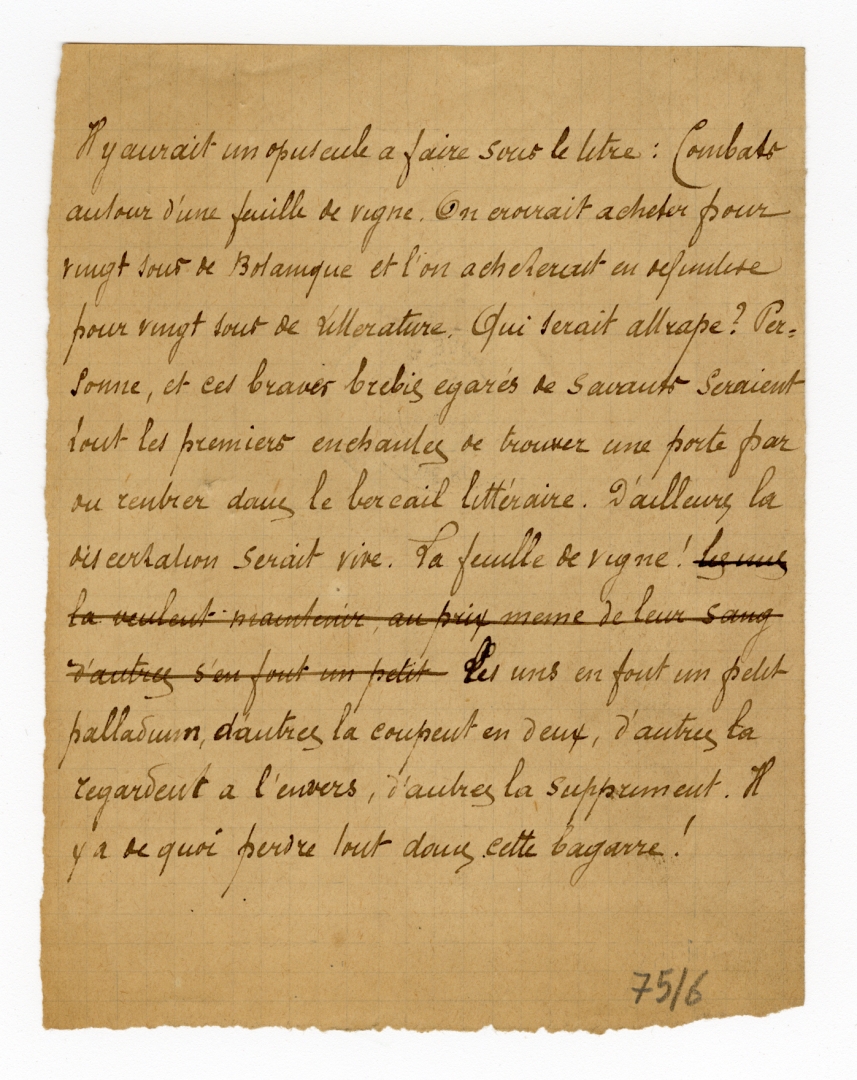 Il y aurait un opuscule a faire sous le titre : Combats
autour d'une feuille de vigne. On croirait acheter pour
vingt sous de Botanique et l'on acheterait en definitive
pour vingt sous de Litterature. Qui serait attrape ? Per=
sonne, et ces braves brebis egarés de savants seraient
tout les premiers enchantes de trouver une porte par
ou rentrer dans le bercail littéraire. D'ailleurs la
discertation serait vive. La feuille de vigne ! les uns
la veulent maintenir, au prix meme de leur sang
d'autres s'en font un petit Les uns en font un petit
palladium, d'autres la coupent en deux, d'autres la
regardent a l'envers, d'autres la suppriment. Il
y a de quoi perdre tout dans cette bagarre !
75/6